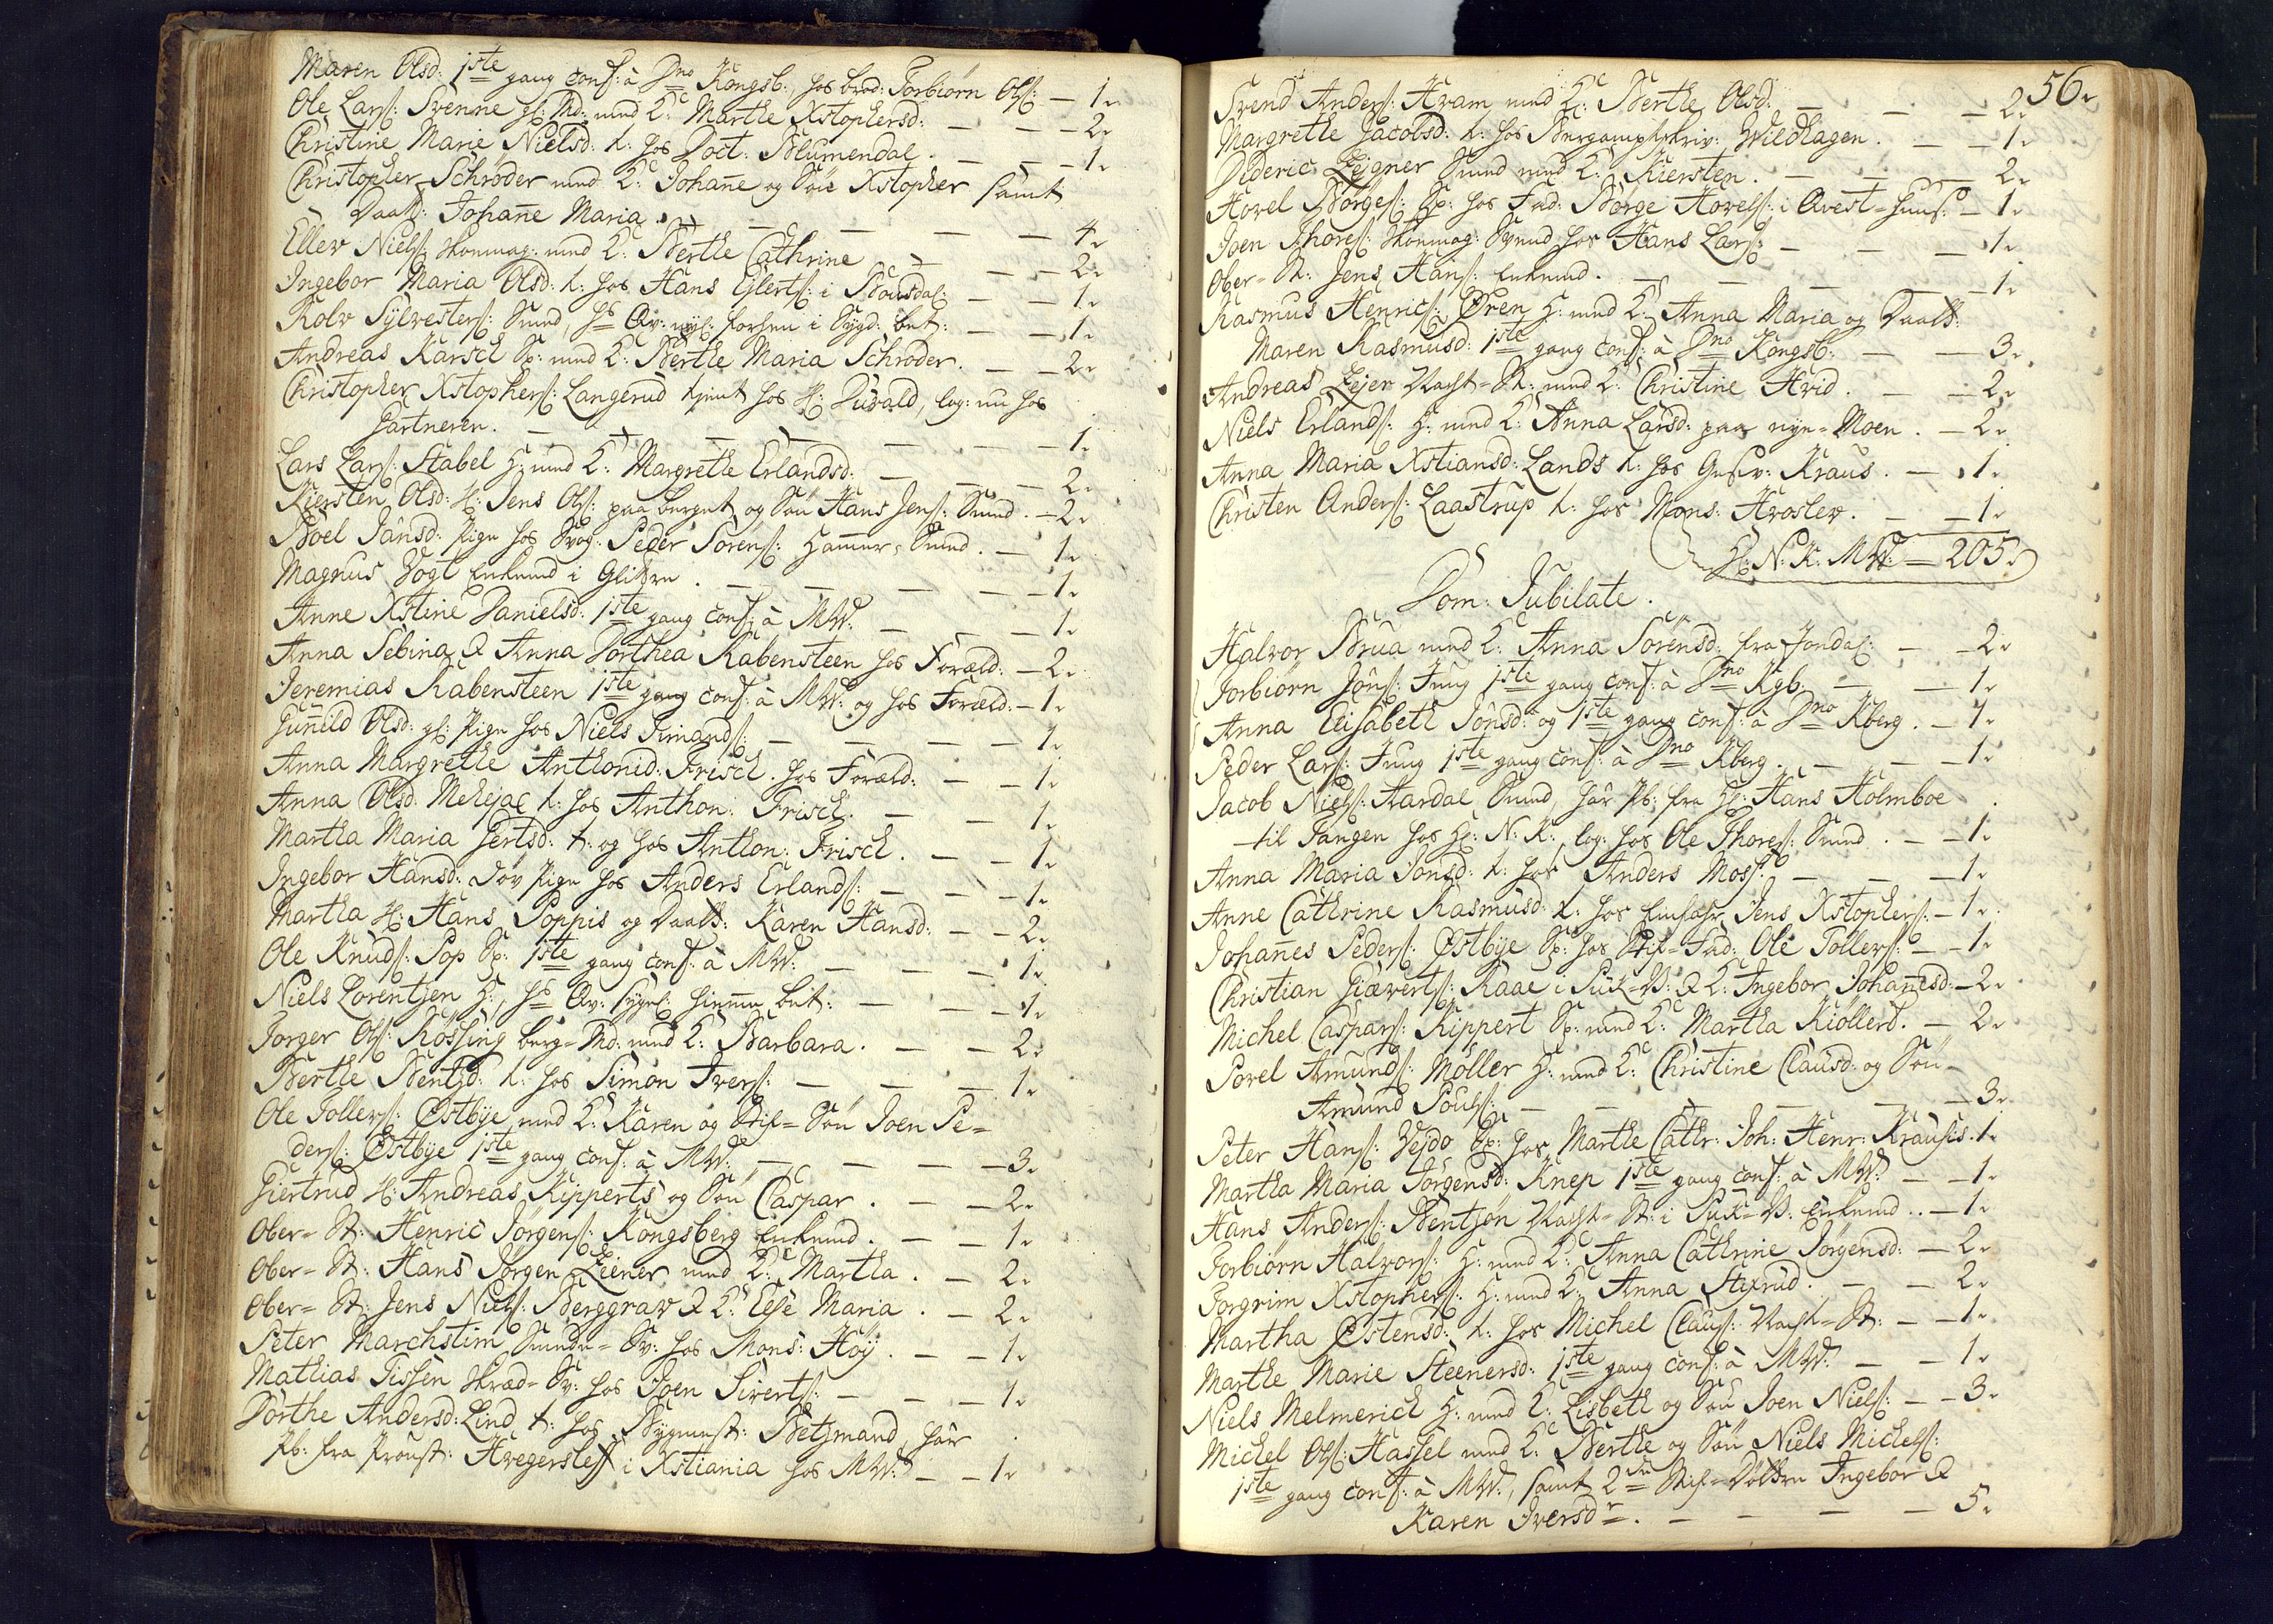 Maren Olsd: 1ste gang conf: à Dno Kongsb: hos brod: Torbiørn Ols: — 1.
Ole Lars: Svenne gl: Md: med K: Marthe Xstophersd: — — — 2.
Christine Marie Nielsd: t: hos Doct: Blumendal. — — — 1.
Christopher Schrøder med K: Johañe og Søn Xstopher samt
Daatt: Johañe Maria. — — — — — 4.
Ellev Niels: skomag: med K: Berthe Cathrine — — — 2.
Ingebor Maria Olsd: t: hos Hans Glerts: i — — 1.
Rolv Sylvesters: Smed, — — 1.
Andreas Karsch Sp: med K: Berthe Maria Schrøder. — — 2.
Christopher Xstophers: Langerud tjent hos H: Duvald, log: nu hos
Gartneren. — — — — — — 1.
Lars Lars: Stabel H: med K: Margrethe Erlandsd: — — — 2.
Kiersten Olsd: H: Jens Ols: paa berget og Søn Hans Jens: Smed. — 2.
Boel Jånsd: Pige hos Svog: Peder Sørens: Ham̃er-Smed. — 1.
Magnus Vogt Enkemd i Glitre. — — — — — 1.
Anne Xstine Danielsd: 1ste gang conf: à MW: — — — 1.
Anna Sebina & Anna Dorthea Rabensteen hos Foræld: — 2.
Jeremias Rabensteen 1ste gang conf: à MW: og hos Foræld: — 1.
Gun̄ild Olsd: gl: Pige hos Niels Simands: — — — — 1.
Anna Margrethe Anthonid: Frisch. hos Foræld: — — 1.
Anna Olsd: Mehejas t: hos Anthon: Frisch. — — 1.
Martha Maria Gertsd: t: og hos Anthon: Frisch. — — 1.
Ingebor Hansd: døv Pige hos Anders Erlands: — — — 1.
Martha H: Hans Poppis og Daatt: Karen Hansd: — — 2.
Ole Knuds: Pop Sp: 1ste gang conf: à MW: — — — 1.
Niels Lorentzen H: — — 1.
Torger Ols: Røssing berg-Md: med K: Barbara. — — 2.
Berthe Bentsd: t: hos Simon Ivers: — — — 1.
Ole Tollers: Østbye med K: Karen og Stif-Søn Joen Pe-
ders: Østbye 1ste gang conf: à MW: — — — — 3.
Giertrud H: Andreas Kipperts og Søn Caspar. — — 2.
Ober-St: Henric Jørgens: Kongsberg Enkemd. — — 1.
Ober-St: Hans Jørgen Leener med K: Martha. — 2.
Ober-St: Jens Niels: Berggrav & K: Else Maria. — 2.
Peter Marchstim Smede-Sv: hos Mons: Høÿ. — — 1.
Mathias Tissen Skræd-Sv: hos Joen Siverts: — — 1.
Dorthe Andersd: Lind t: hos Bygmest: Betzmand, har
Pb: fra Proust: Hvegersleff i Xstiania hos MW: — — 1.
56.
Svend Anders: Hvam med K: Berthe Olsd: — — — 2.
Margrethe Jacobsd: t: hos Bergamptskriv: Wildhagen. — — 1.
Dideric Zejgner Smed med K: Kiersten. — — — 2.
Hovel Børges: Sp: hos Fad: Børge Hovels: i Qvest-Huus: — 1.
Joen Thores: skomag: Svend hos Hans Lars: — — — 1.
Ober-St: Jens Hans: Enkemd. — — — — 1.
Rasmus Henrics: Øren H: med K: Anna Maria og Daatt:
Maren Rasmusd: 1ste gang conf: à Dno Kongsb: — — 3.
Andreas Zejer Vagt-St: med K: Christine Hvid. — — 2.
Niels Erlands: H: med K: Anna Larsd: paa nye-Moen. — 2.
Anna Maria Xstiansd: Lands t: hos Gesv: Kraus. — 1.
Christen Anders: Laastrup t: hos Mons: Hvoslev. — — 1.
H: N: K: MW: = 205.
Dom: Jubilate.
Halvor Brua med K: Anna Sørensd: fra Jondal: — — 2.
Torbiørn Jøns: Jung 1ste gang conf: à Dno Kgb. — — 1.
Anna Elisabeth Jónsd: og 1ste gang conf: à Dno Kberg. — 1.
Peder Lars: Jung 1ste gang conf: à Dno Kberg. — — — 1.
Jacob Niels: Aardal Smed, har Pb: fra H: Hans Holmboe
til Tangen hos H: N: K:, log: hos Ole Thores: Smed. — — 1.
Anna Maria Jonsd: t: hos Anders Mos: — — — 1.
Anne Cathrine Rasmusd: t: hos Einfahr Jens Xstophers: — 1.
Johañes Peders: Østbye Sp: hos Stif-Fad: Ole Tollers: — — 1.
Christian Giæverts: Raae i Puk-V: & K: Ingebor Johañesd: — 2.
Michel Caspars: Kippert Sp: med K: Martha Kiøllerd. — 2.
Povel Amunds: Møller H: med K: Christine Clausd: og Søn
Amund Pouls: — — — — — — 3.
Peter Hans: Vejdo Sp: hos Marthe Cathr: Joh: Henr: Krausis. 1.
Martha Maria Jørgensd: Knep 1ste gang conf: à MW: — — 1.
Hans Anders: Bentzøn Vagt-St: i Puk-V: Enkemd. — 1.
Torbiørn Halvors: H: med K: Anna Cathrine Jørgensd: — 2.
Torgrim Xstophers: H: med K: Anna Stixrud. — — 2.
Martha Østensd: t: hos Michel Claus: Vagt-St: — — 1.
Marthe Marie Steenersd: 1ste gang conf: à MW: — — 1.
Niels Melmerich H: med K: Lisbeth og Søn Joen Niels: — — 3.
Michel Ols: Hassel med K: Berthe og Søn Niels Michels:
1ste gang conf: à MW:, samt 2de Stif-Døttre Ingebor &
Karen Iversdr. — — — — 5.